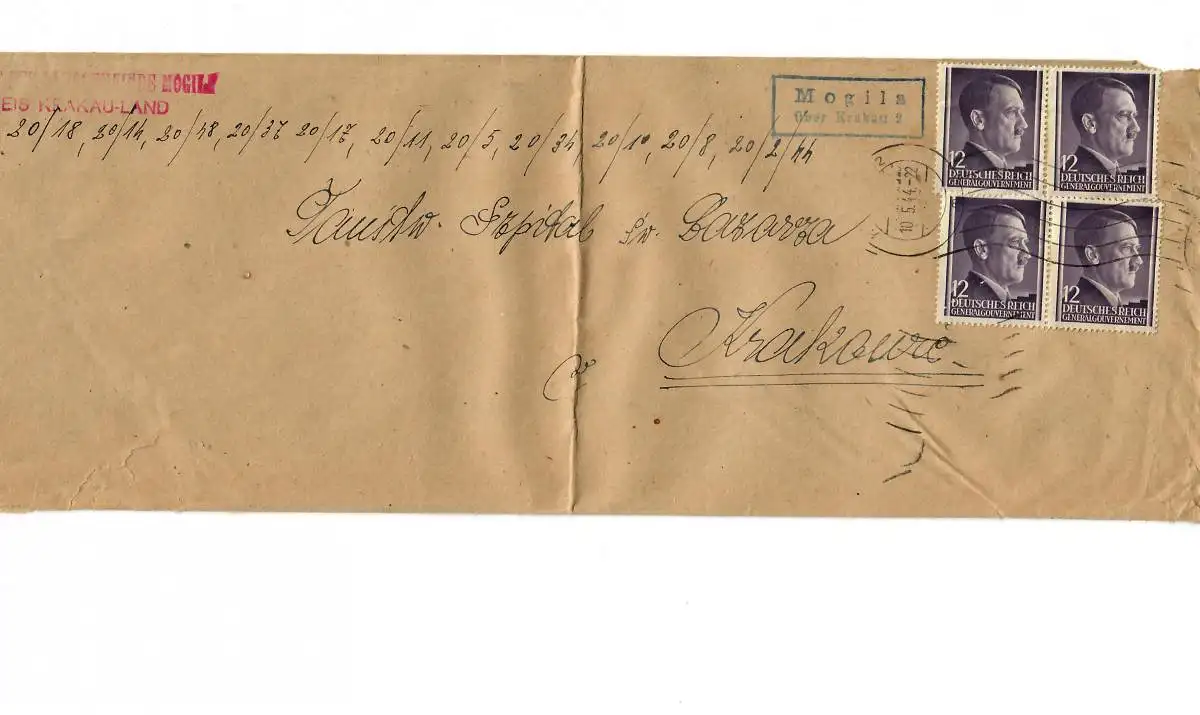 GEMEINDE MOGIŁ
EIS KRAKAU-LAND
Mogila
über Krakau 2
20/18, 20/14, 20/48, 20/37 20/17, 20/11, 20/5, 20/34, 20/10, 20/8, 20/2/44
10.5.44-22
Państw. Szpital św. Łazarza
w
Krakowie
12
DEUTSCHES REICH
GENERALGOUVERNEMENT
12
DEUTSCHES REICH
GENERALGOUVERNEMENT
12
DEUTSCHES REICH
GENERALGOUVERNEMENT
12
DEUTSCHES REICH
GENERALGOUVERNEMENT